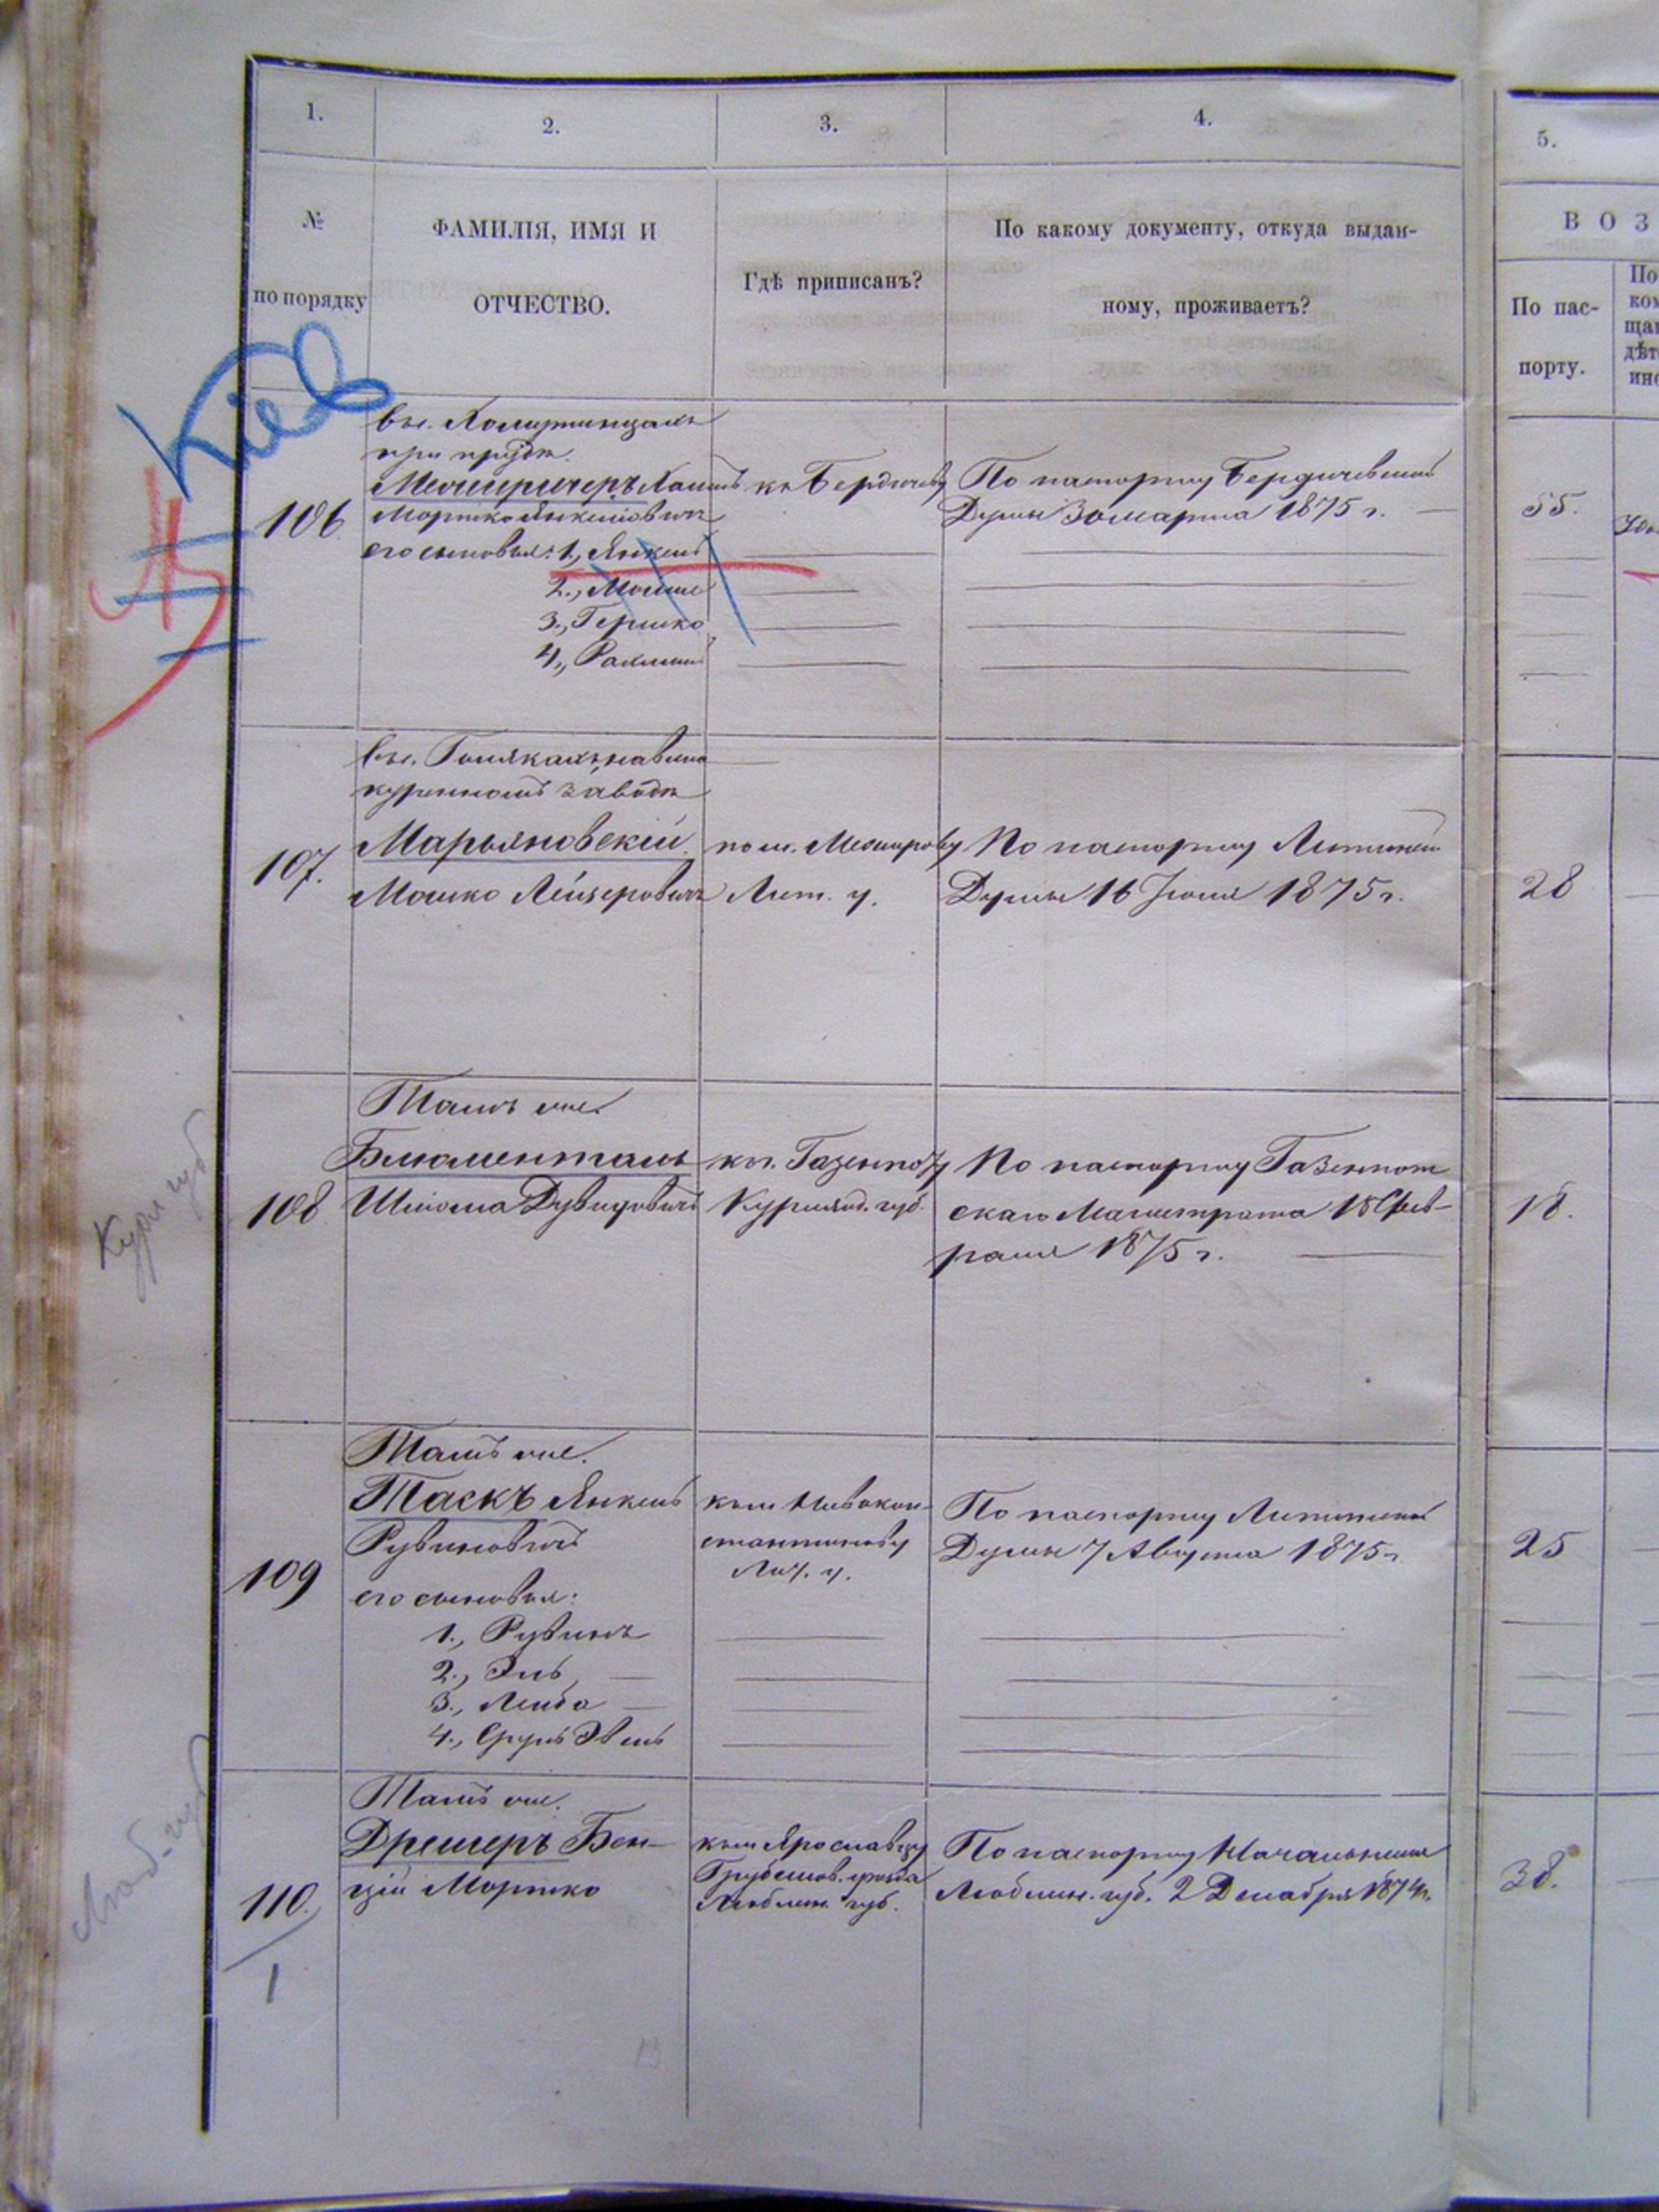 1.
2.
3.
4.
5.
№
по порядку
ФАМИЛІЯ, ИМЯ И
ОТЧЕСТВО.
Гдѣ приписанъ?
По какому документу, откуда выдан-
ному, проживаетъ?
ВОЗ
По пас-
порту.
По
ком
щан
дѣт
ино
Кіев
106.
при прудѣ.
Мошко Янкелевичъ
его сыновья: 1., Янкель
2., Мошко
3., Гершко
4., Рахмиль
къ Бердичеву
По паспорту Бердичевской
Думы 30 марта 1875 г.
55.
107.
куренномъ заводѣ
Марьяновскій
Мошко Лейзеровичъ
по м. Межирову
Лит. у.
По паспорту Литинской
Думы 16 Іюля 1875 г.
28
Курл. губ
108
Тамъ же.
Блюменталь
Шлема Дувидовичъ
къ г. Газенпоту
Курлянд. губ.
По паспорту Газенпот
скаго Магистрата 18 Фев-
раля 1875 г.
18.
109
Тамъ же.
Таскъ Янкель
Рувиновичъ
его сыновья:
1., Рувинъ
2., Эль
3., Лейба
4., Сруль
къ м Новокон-
стантинову
Лит. у.
По паспорту Литинской
Думы 7 Августа 1875 г.
25
Люб. губ
110.
1
Тамъ же.
Дрешеръ Бен-
ціи Мортко
къ м Ярославцу
Грубешов. уѣзда
Люблин. губ.
По паспорту Начальника
Люблин. губ. 2 Декабря 1874 г.
38.